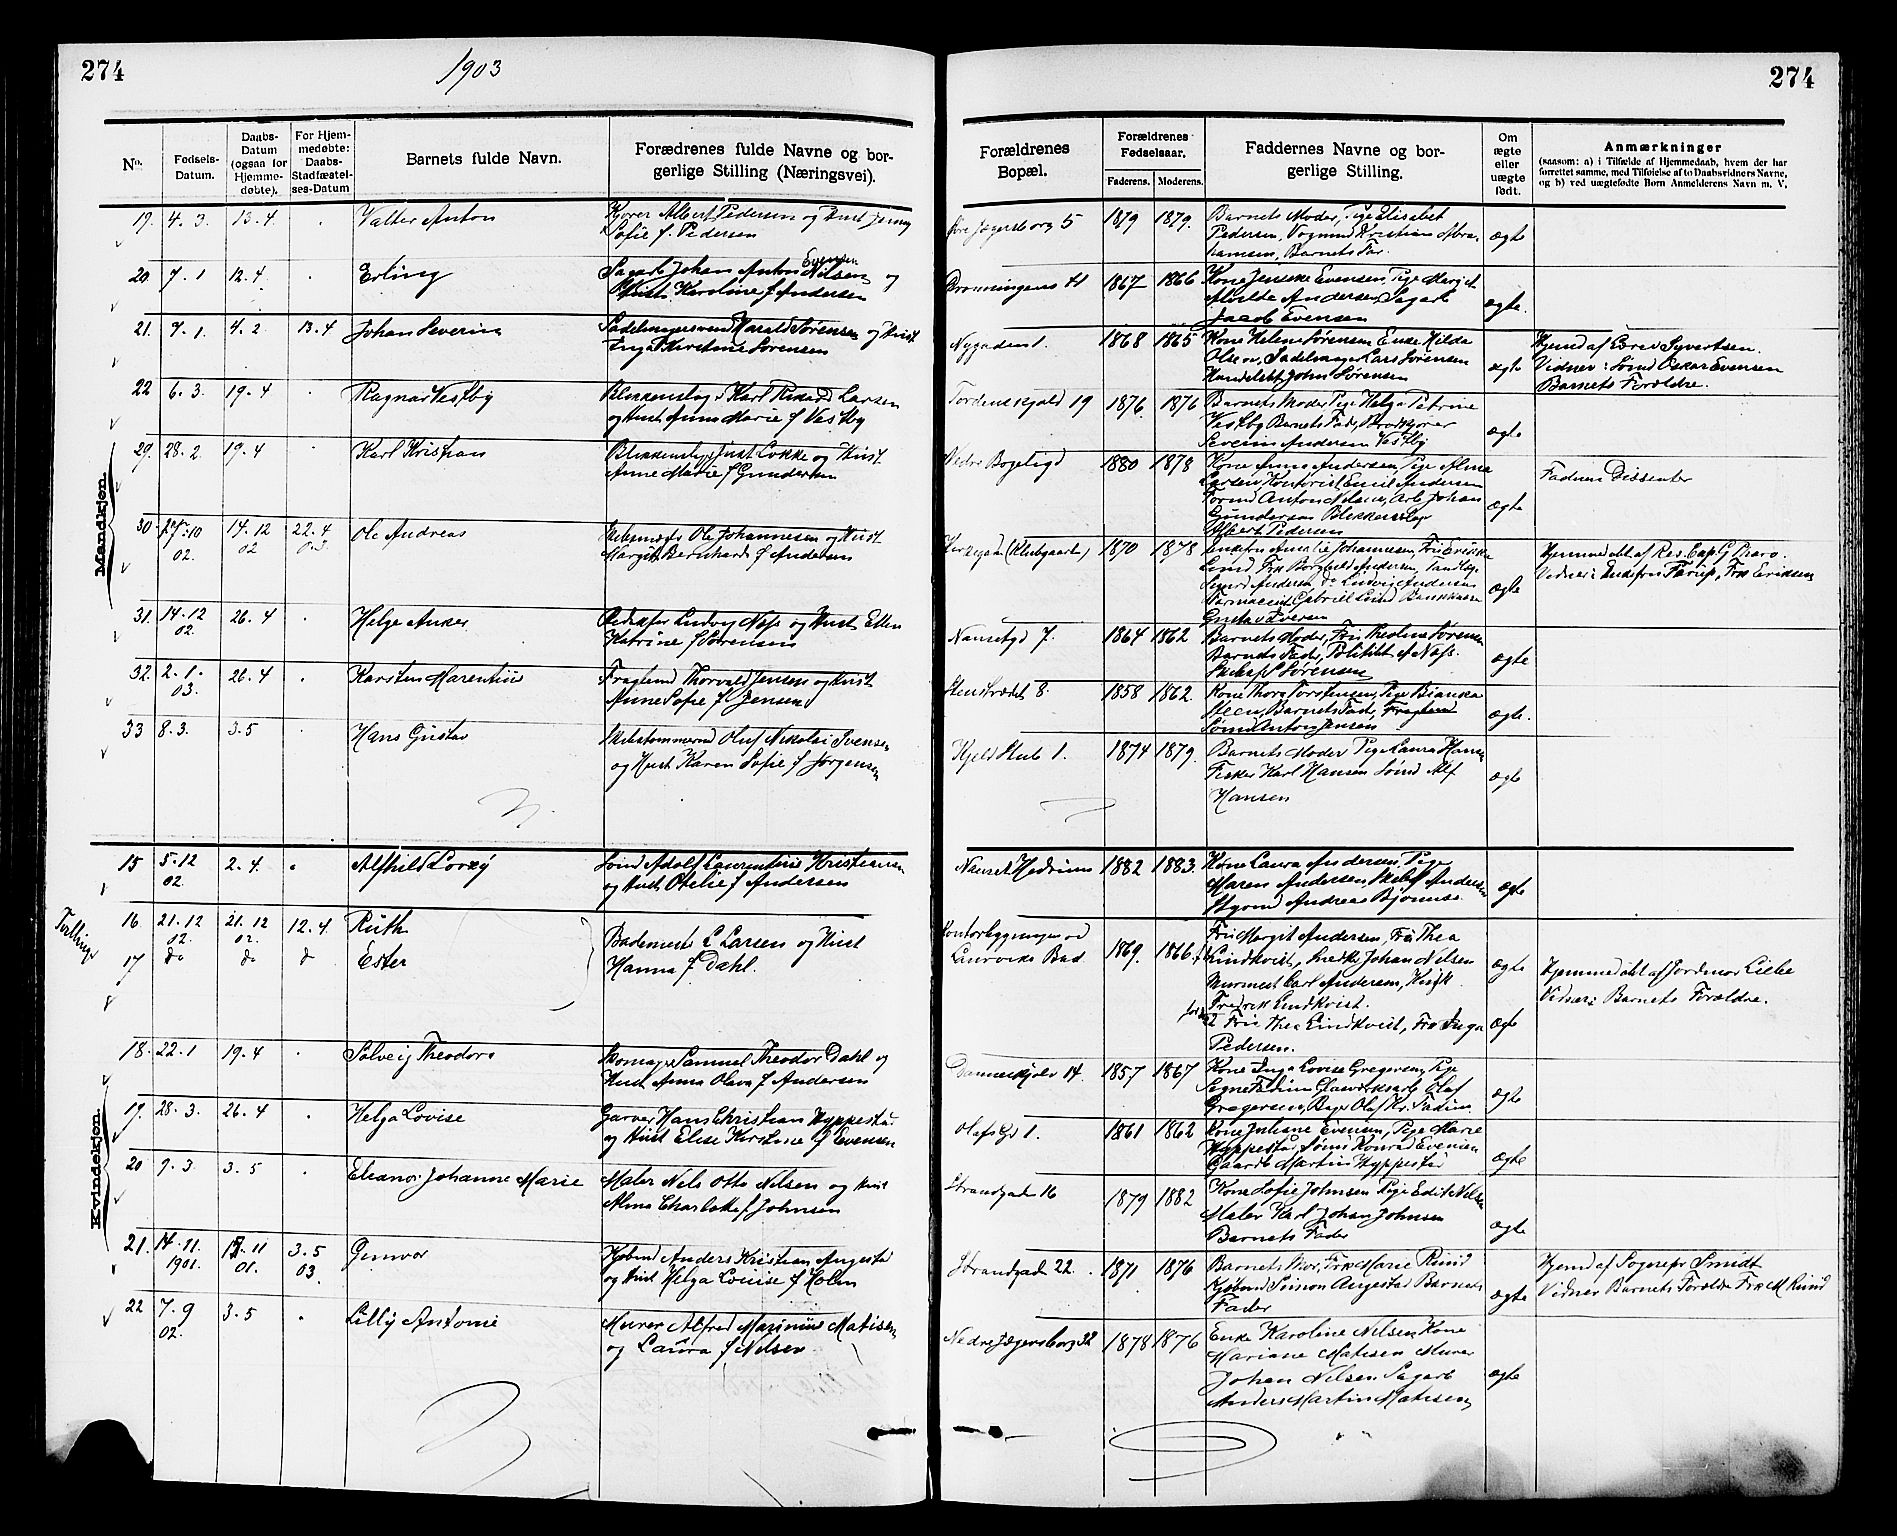 274
1903
No.
Fødsels-
Datum.
Daabs-
Datum
(ogsaa for
Hjemme-
døbte).
For Hjem-
medøbte:
Daabs-
Stadfæstel-
ses-Datum
Barnets fulde Navn.
Forædrenes fulde Navne og bor-
gerlige Stilling (Næringsvei).
Mandkjøn.
19. 4.3. 13.4. Valter Anton
Kjører Albert Pedersen og Hust Jenny
Sofie f. Pedersen
20. 7.1 12.4. Erling
Evensen
Sagarb Johan Anton Nilsen og
Hust Karoline f Andersen
21. 7.1. 4.2 13.4 Johan Severin
Sadelmagersvend Harald Sørensen og Hust
Inga Kirstine Sørensen
22 6.3. 19.4 Ragnar Vestby
Blikkenslag Karl Rikard Larsen
og Hust Anna Marie f Vestby
29. 28.2. 19.4 Karl Kristian
Blikkenslag Løkke og Hust
Anne Marie f Gundersen
30. 27.10 14.12 22.4 Ole Andreas
02. 02 03
Ole Johannesen og Hust
Margit Bernharde f Andersen
31. 14.12 26.4 Helge Anker
02.
Ludvig Næss og Hust Ellen
Katrine f Sørensen
32. 2.1. 26.4 Karsten Marentius
03.
Thorvald Jensen og Hust
Anne Sofie f Jensen
33 8.3. 3.5 Hans Gustav
Skibstømmerm Oluf Nikolai Ivensen
og Hust Karen Sofie f Jørgensen
Kvindekjøn.
15 5.12 2.4. Alfhild Lovny
02.
Adolf Laurentius Kristiansen
og Hust Otelie f Andersen
Tvillinger
16. 21.12 21.12 12.4. Ruth
02. 02.
17 do do d Ester
Bademester L Larsen og Hust
Hanna f Dahl.
18. 22.1 19.4 Solveig Theodora
Skomager Samuel Theodor Dahl og
Hust Anna Olava f Andersen
19. 28.3. 26.4 Helga Lovise
Garver Hans Christian Hyppestad
og Hust Elise Kirstine f Evensen
20 9.3. 3.5 Eleanor Johanne Marie
Maler Nils Otto Nilsen og Hust
Alma Charlotte f Johnsen
21. 14.11. 17.11 3.5 Gunvor
1901. 01. 03.
Kjøbmd Anders Kristian Angestad
og Hust Helga Louise f Holm
22 7.9 3.5 Lilly Antonie
02.
Murer Alfred Marinius Matisen
og Laura f Nilsen
274
Forældrenes
Bopæl.
Forældrenes
Fødselsaar.
Faderens. Moderens.
Faddernes Navne og bor-
gerlige Stilling.
Om
ægte
eller
uægte
født.
Anmærkninger
(saasom: a) i Tilfælde af Hjemmedaab, hvem der har
forrettet samme, med Tilføielse af to Daabsvidners Navne,
og b) ved uægtefødte Børn Anmelderens Navn m. V.
Øvre Jegersborg 5 1879 1879.
Barnets Moder, Pige Elisabet
Pedersen, Vognmd Kristian Abra-
hamsen, Barnets Far.
ægte
Dronningens 41 1867 1866
Kone Jenseke Evensen, Pige Margit
Alvilde Andersen, Sagarb
Jacob Evensen
ægte.
Nygaden 1. 1868 1865
Kone Helene Sørensen Enke Hilda
Olsen, Sadelmager Lars Sørensen
Handelsbt John Sørensen
ægte
Hjemd af Syvertsen.
Vidner: Sømd Oskar Evensen
Barnets Forældre.
Tordenskjold 19 1876. 1876
Barnets Moder Pige Helga Petrine
Vestby Barnets Fad, Brødkjører
Severin Andersen Vestby
ægte
Nedre Bøgeligd 1880 1878
Kone Anna Andersen, Pige Alma
Larsen, Kontorist Emil Andersen
Formd Anton Nilsen, Arb Johan
Gundersen Blikkenslag
Albert Pedersen
ægte
Faderen Dissenter
Kirkegd (Klubgaarden) 1870 1878
Enkefru Amalie Johannesen, Fru Erikka
Lund Frk Borghild Andersen, Tandlæge
Sigurd Andersen do Ludvig Andersen
Farmaceut Gabriel Lund Bankkasse
Gustav Iversen
ægte
Hjemmedøbt af Res. Cap G Diaro.
Vidner: Enkefru Tårup, Frk Eriksen
Nansetgd 7. 1864 1862
Barnets Moder, Fru Thedine Sørensen
Barnets Fader, Politibt Næss.
Sørensen
ægte
Stensrødst 8. 1858 1862
Kone Thora Torstensen, Pige Bianka
Steen, Barnets Fad,
Sømd Anton Jensen
ægte.
Kjeldskub 1. 1874 1879.
Barnets Moder Pige Laura Hansen
Fisker Karl Hansen Sømd Alf
Hansen
ægte
Nanset Hedrum 1882 1883.
Kone Laura Andersen, Pige
Maren Andersen, Andersen
Styrmd Andreas Bjønnes.
ægte
Kontorbygningen ved
Laurviks Bad 1869. 1866.
Fru Margit Andersen, Fru Thea
Lindkvist, Snedker Johan Nilsen
Murmest Carl Andersen,
Fredrik Lindkvist.
for 2 Fru Thea Lindkvist, Fru Inga
Pedersen.
ægte
ægte
Hjemmedøbt af Jordmor Liebe
Vidner: Barnets Forældre.
Danneskjold 14. 1857 1867
Kone Inga Lovise Gregersen, Pige
Signe Fadum Glasværksarb Olaf
Gregersen, Bager Olaf Kr. Fadum
ægte
Olafsgd 1. 1861 1862
Kone Juliane Evensen, Pige Marie
Hyppestad, Sømd Konrad Evensen
Gaardb Martin Hyppestad
ægte
Strandgade 16 1879 1882
Kone Sofie Johnsen Pige Edit Nilsen
Maler Karl Johan Johnsen
Barnets Fader
ægte
Strandgade 22. 1871 1876
Barnets Mor, Frk Marie Ruud
Kjøbmd Simon Angestad Barnets
Fader
ægte
Hjemd af Sognepr Smidt
Vidner Barnets Forældre Frk M Ruud
Nedre Jegersborg 32 1878 1876
Enke Karoline Nilsen Kone
Mariane Matisen Murer
Johan Nilsen Sagarb
Anders Martin Matisen,
ægte